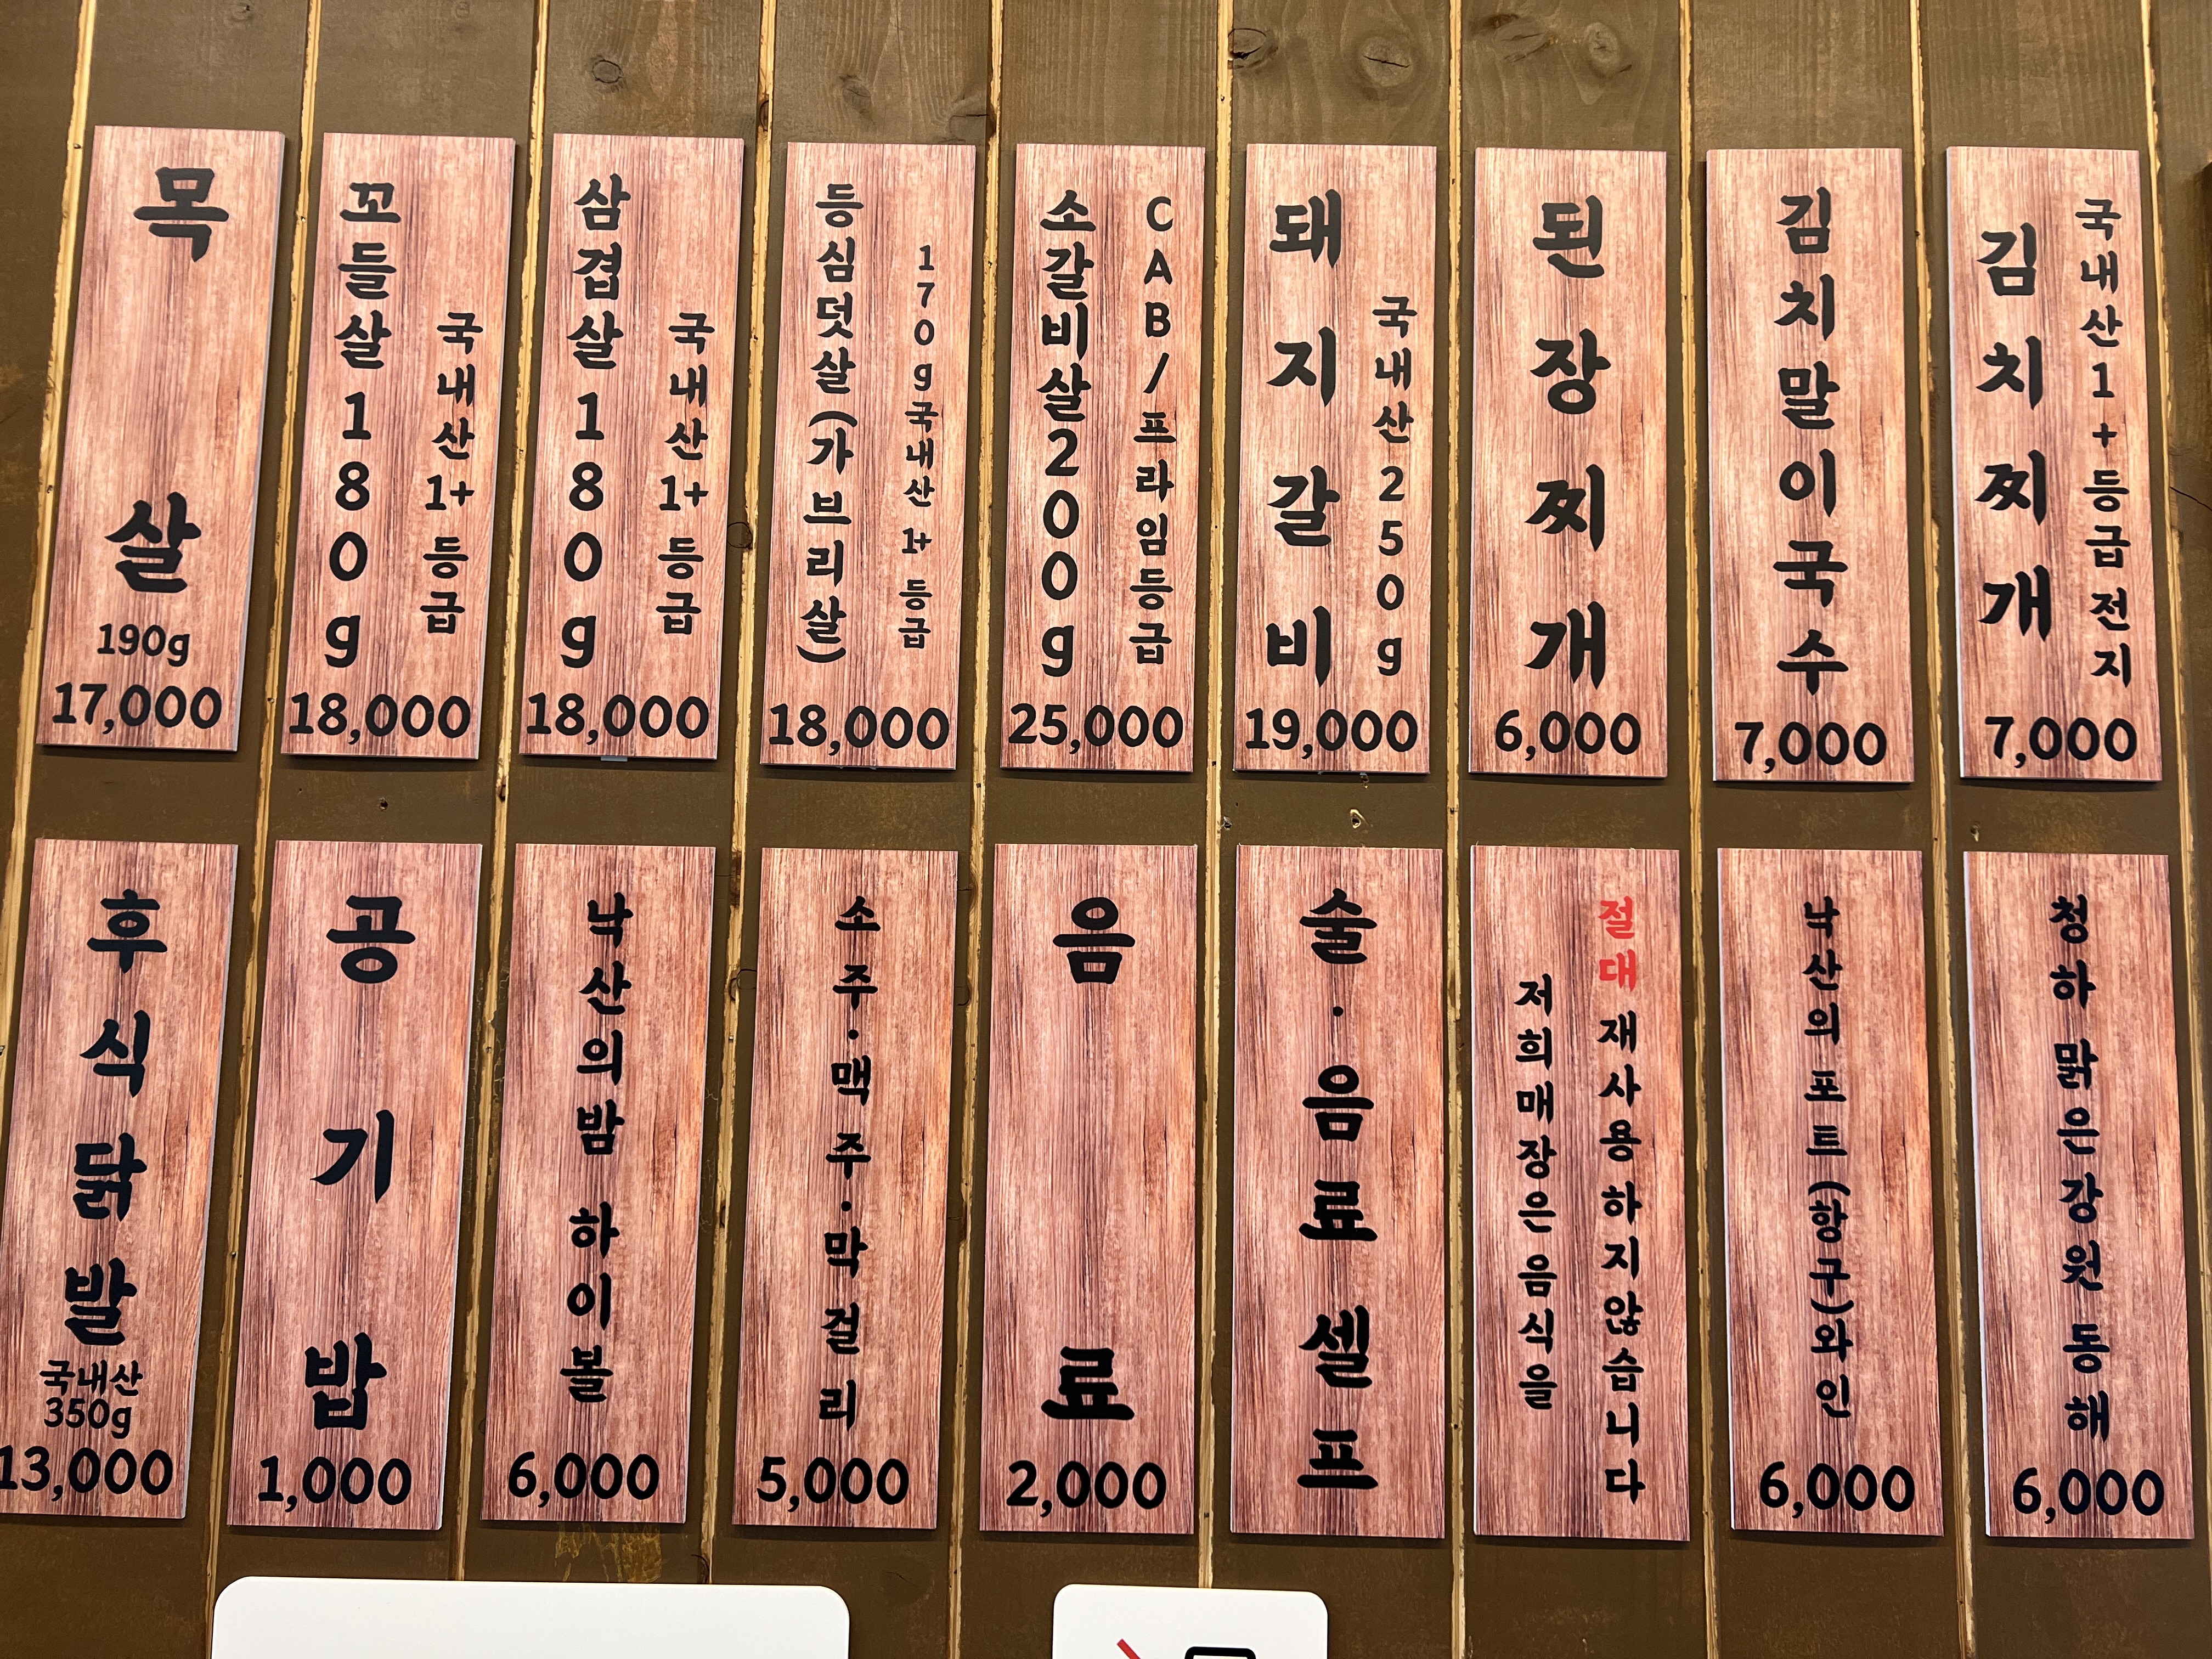 목살
190g
17,000
꼬들살180g
국내산1+등급
18,000
삼겹살180g
국내산1+등급
18,000
등심덧살(가브리살)
170g국내산1+등급
18,000
소갈비살200g
CAB/프라임등급
25,000
돼지갈비
국내산250g
19,000
된장찌개
6,000
김치말이국수
7,000
김치찌개
국내산1+등급전지
7,000
후식닭발
국내산
350g
13,000
공기밥
1,000
낙산의밤 하이볼
6,000
소주·맥주·막걸리
5,000
음료
2,000
술·음료 셀프
저희매장은음식을
절대 재사용하지않습니다
낙산의포트(항구)와인
6,000
청하 맑은강원동해
6,000